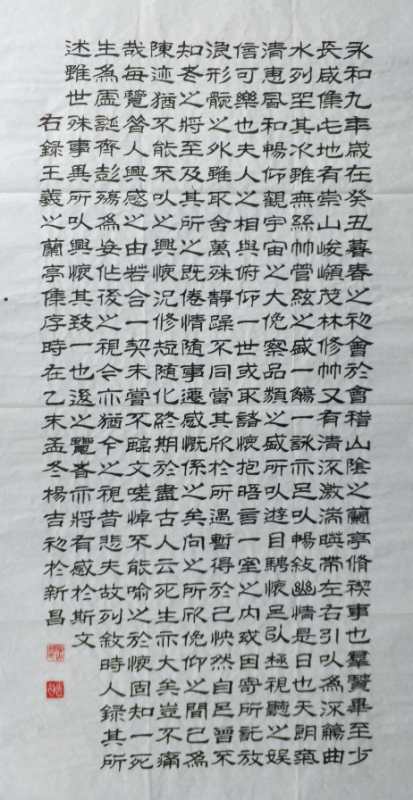 永和九年歲在癸丑暮春之初會於會稽山陰之蘭亭脩禊事也羣賢畢至少
長咸集此地有崇山峻嶺茂林修竹又有清流激湍暎帶左右引以為流觴曲
水列坐其次雖無絲竹管絃之盛一觴一詠亦足以暢敘幽情是日也天朗氣
清惠風和暢仰觀宇宙之大俛察品類之盛所以遊目騁懷足以極視聽之娛
信可樂也夫人之相與俯仰一世或取諸懷抱晤言一室之內或因寄所託放
浪形骸之外雖取舍萬殊靜躁不同當其欣於所遇暫得於己怏然自足曾不
知老之將至及其所之既倦情隨事遷感慨係之矣向之所欣俛仰之間已為
陳迹猶不能不以之興懷況修短隨化終期於盡古人云死生亦大矣豈不痛
哉每覽昔人興感之由若合一契未嘗不臨文嗟悼不能喻之於懷固知一死
生為虛誕齊彭殤為妄作後之視今亦猶今之視昔悲夫故列敘時人錄其所
述雖世殊事異所以興懷其致一也後之覽者亦將有感於斯文
右錄王羲之蘭亭集序時在乙未孟冬楊吉初於新昌